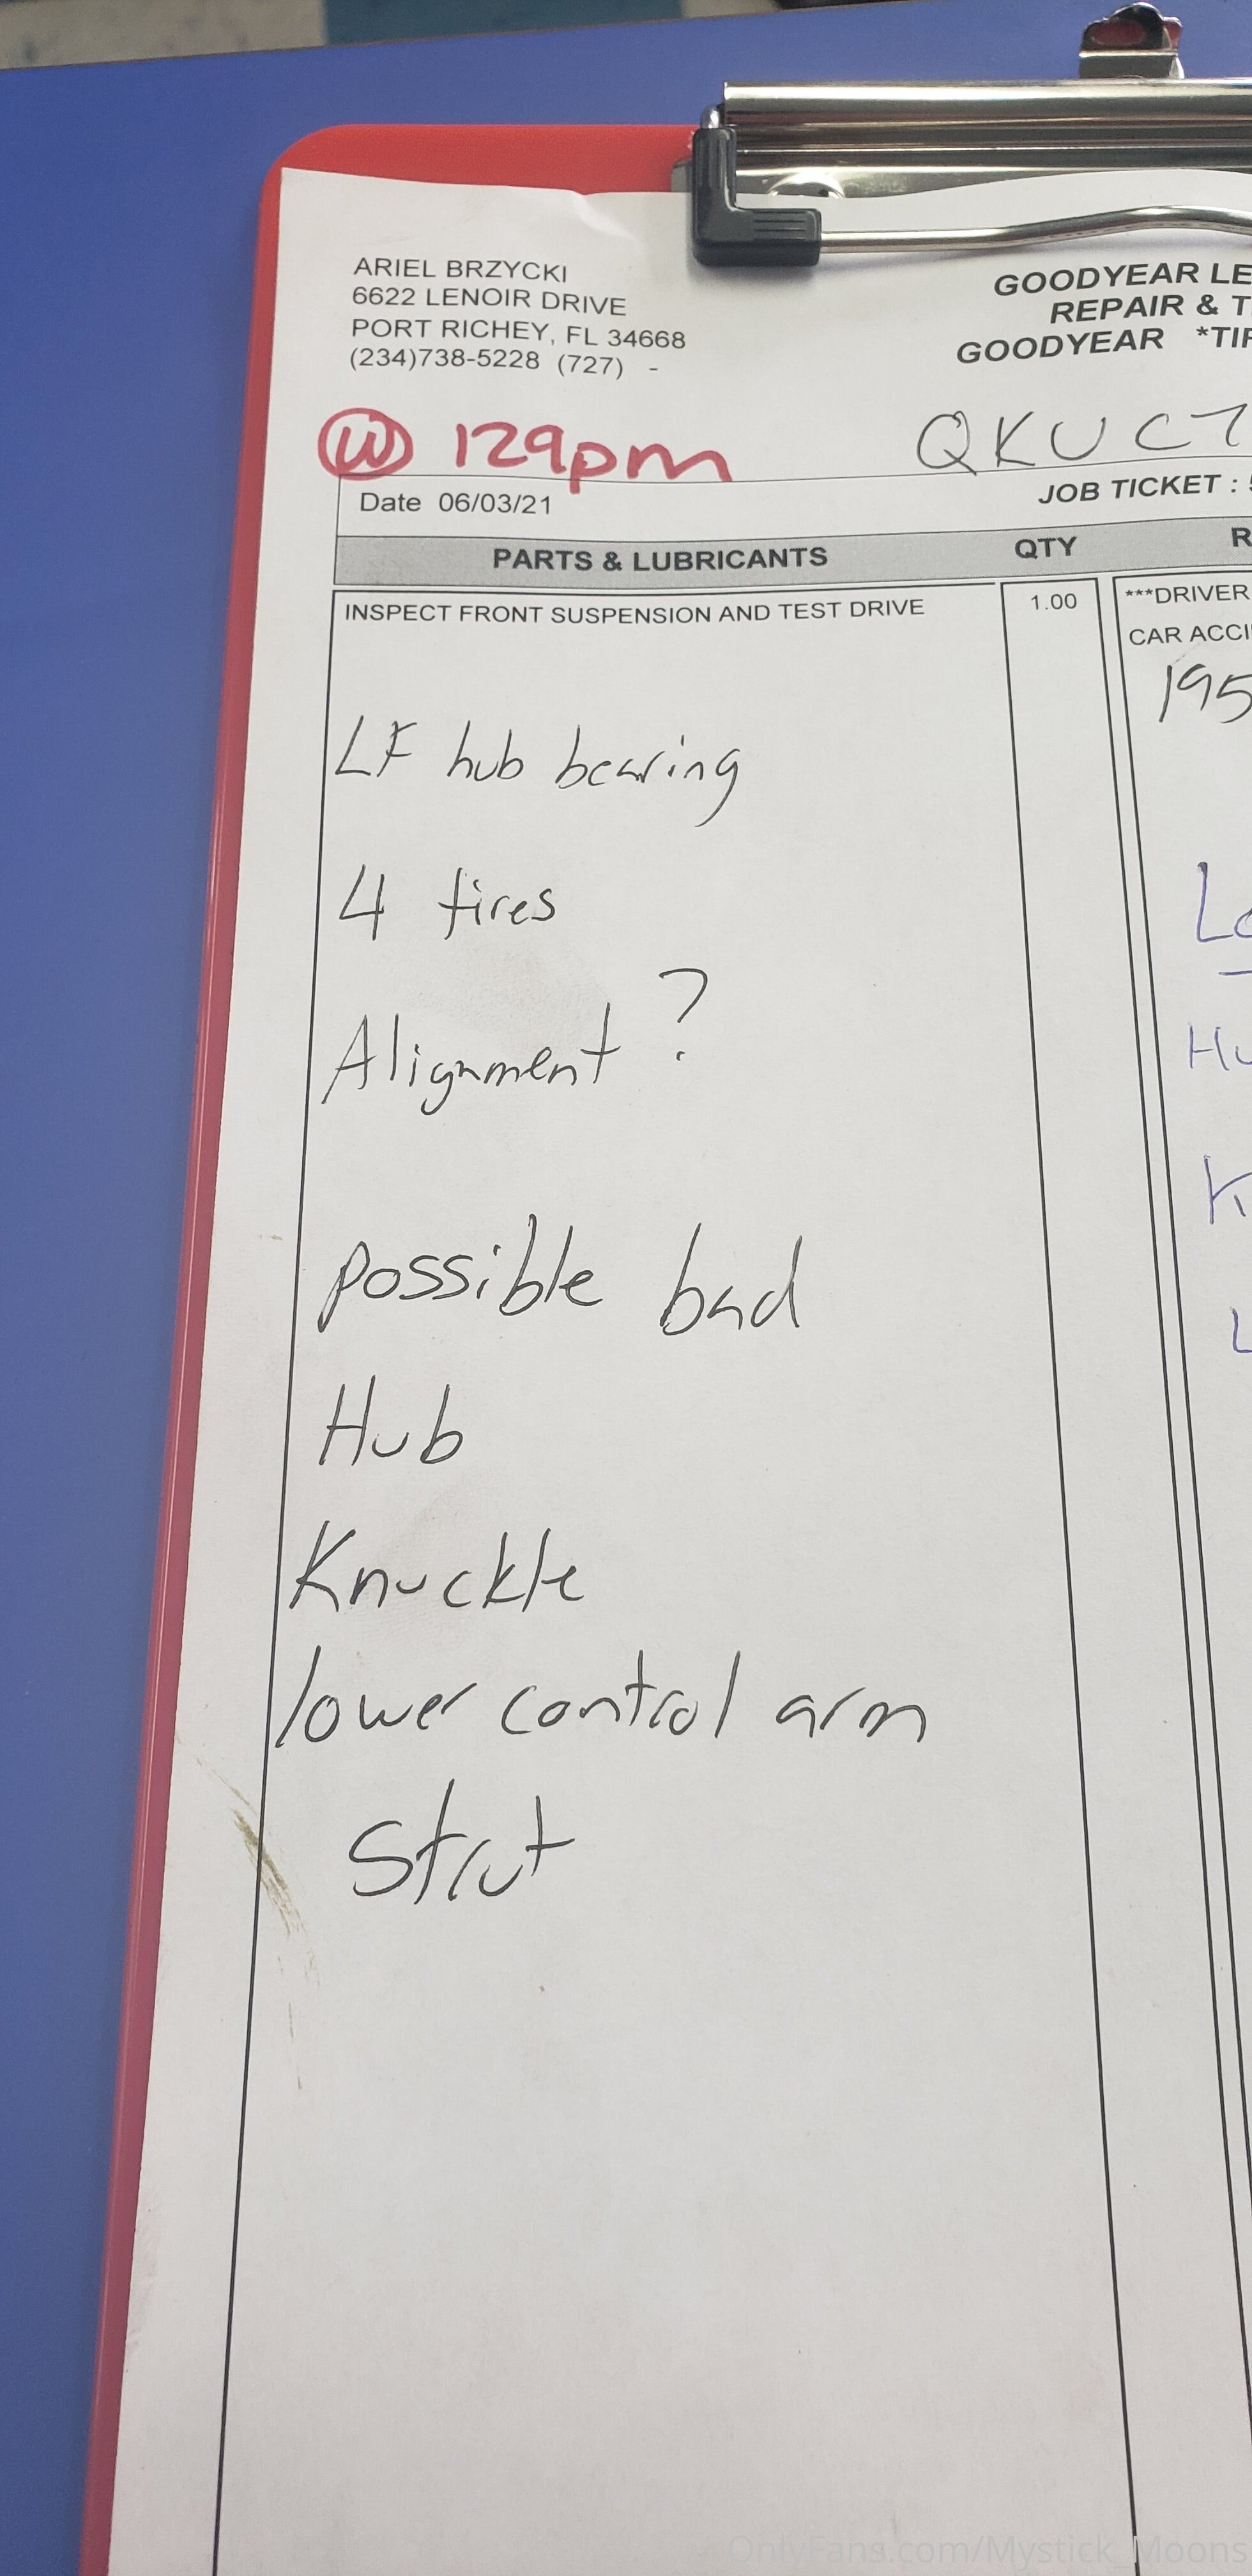 ARIEL BRZYCKI
6622 LENOIR DRIVE
PORT RICHEY, FL 34668
(234)738-5228 (727) -
GOODYEAR LE
REPAIR & T
GOODYEAR *TIF
W 129pm
QKUC7
Date 06/03/21
JOB TICKET :
PARTS & LUBRICANTS
QTY
R
INSPECT FRONT SUSPENSION AND TEST DRIVE
1.00
***DRIVER
CAR ACCI
195
LF hub bearing
4 tires
Lo
Alignment ?
Hu
K
possible bad
L
Hub
Knuckle
lower control arm
Strut
OnlyFans.com/Mystick_Moons